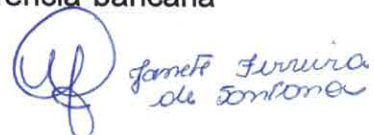 rência bancária
Janete Ferreira
de Santana